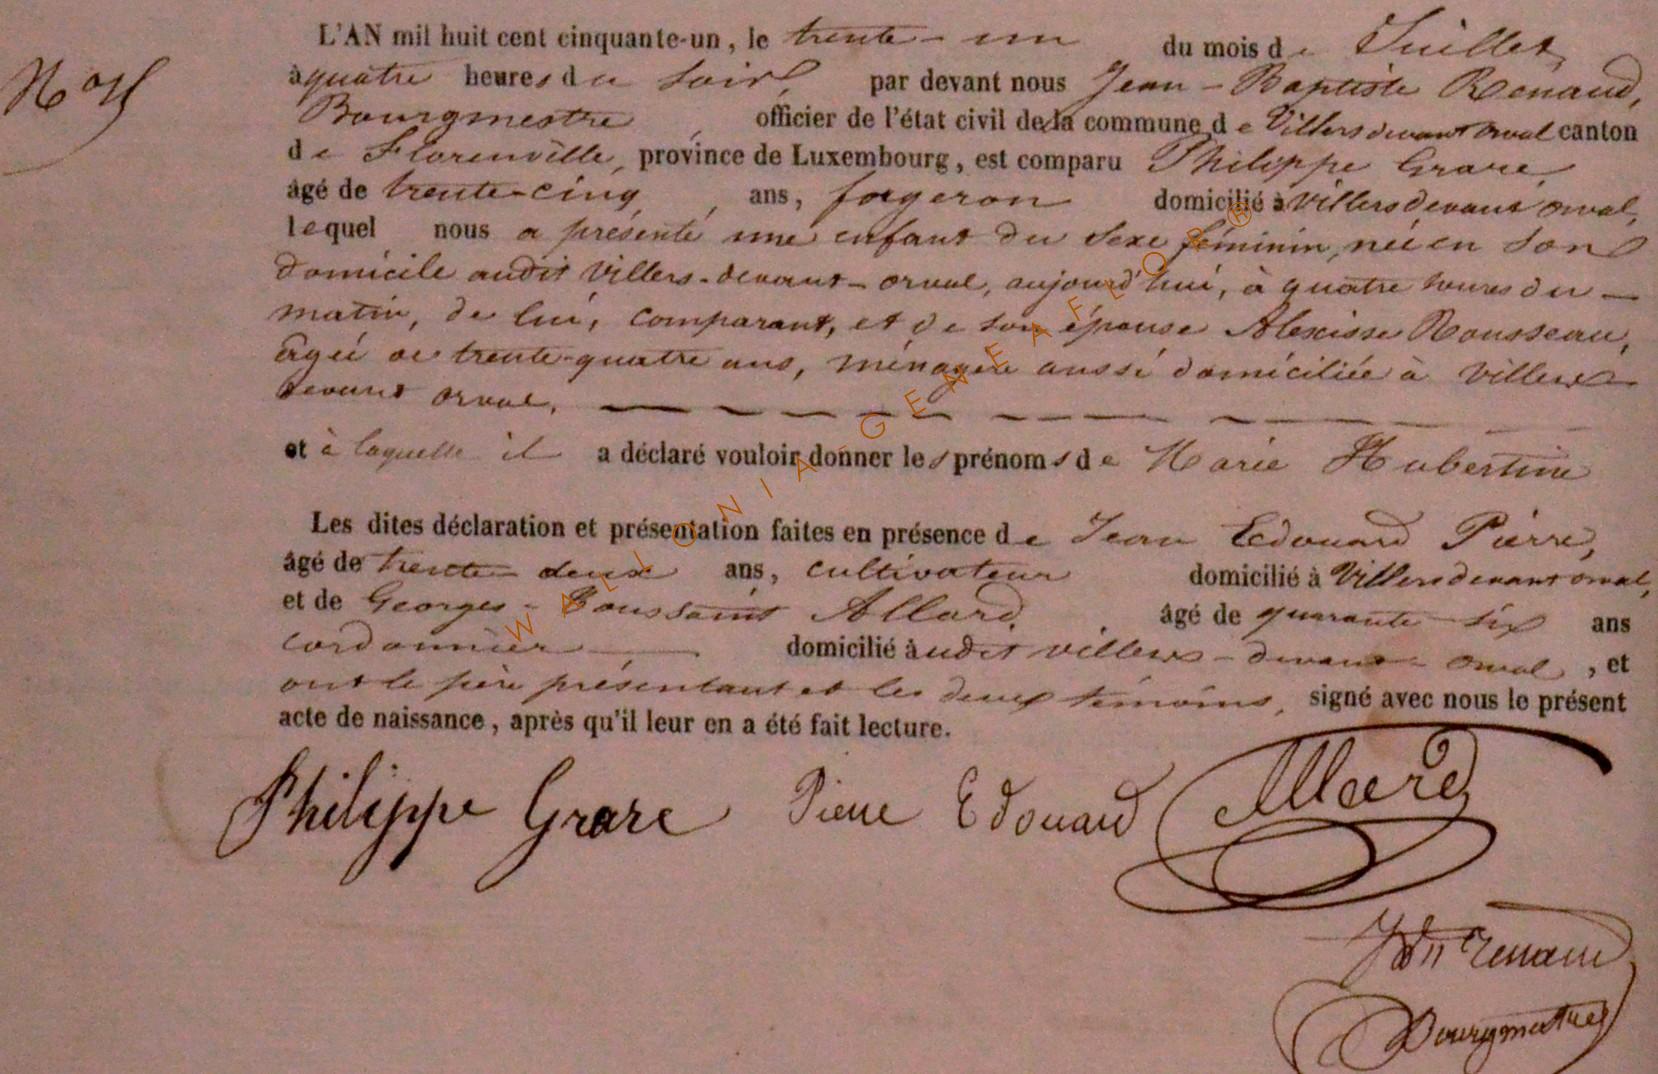 L'AN mil huit cent cinquante-un, le trente-un du mois de Juillet,
à quatre heures du soir, par devant nous Jean-Baptiste Renaud,
Bourgmestre officier de l'état civil de la commune de Villers devant orval canton
de Florenville, province de Luxembourg, est comparu Philippe Grare,
âgé de trente-cinq ans, forgeron domicilié à Villers devant orval,
lequel nous a présenté une enfant du sexe féminin, née en son
domicile audit Villers-devant-orval, aujourd'hui, à quatre heures du
matin, de lui, comparant, et de son épouse Alexisse Rousseau,
âgée de trente-quatre ans, ménagère aussi domiciliée à Villers
devant orval.
et à laquelle il a déclaré vouloir donner les prénoms de Marie Hubertine
Les dites déclaration et présentation faites en présence de Jean Edouard Pierre,
âgé de trente-deux ans, cultivateur domicilié à Villers devant orval,
et de Georges-Toussaint Allard âgé de quarante-six ans
cordonnier domicilié audit villers-devant-orval, et
ont le père présentant et les deux témoins, signé avec nous le présent
acte de naissance, après qu'il leur en a été fait lecture.
Philippe Grare Pierre Edouard Allard
Renaud
Bourgmestre
WALLONIA GENEAFLOR®